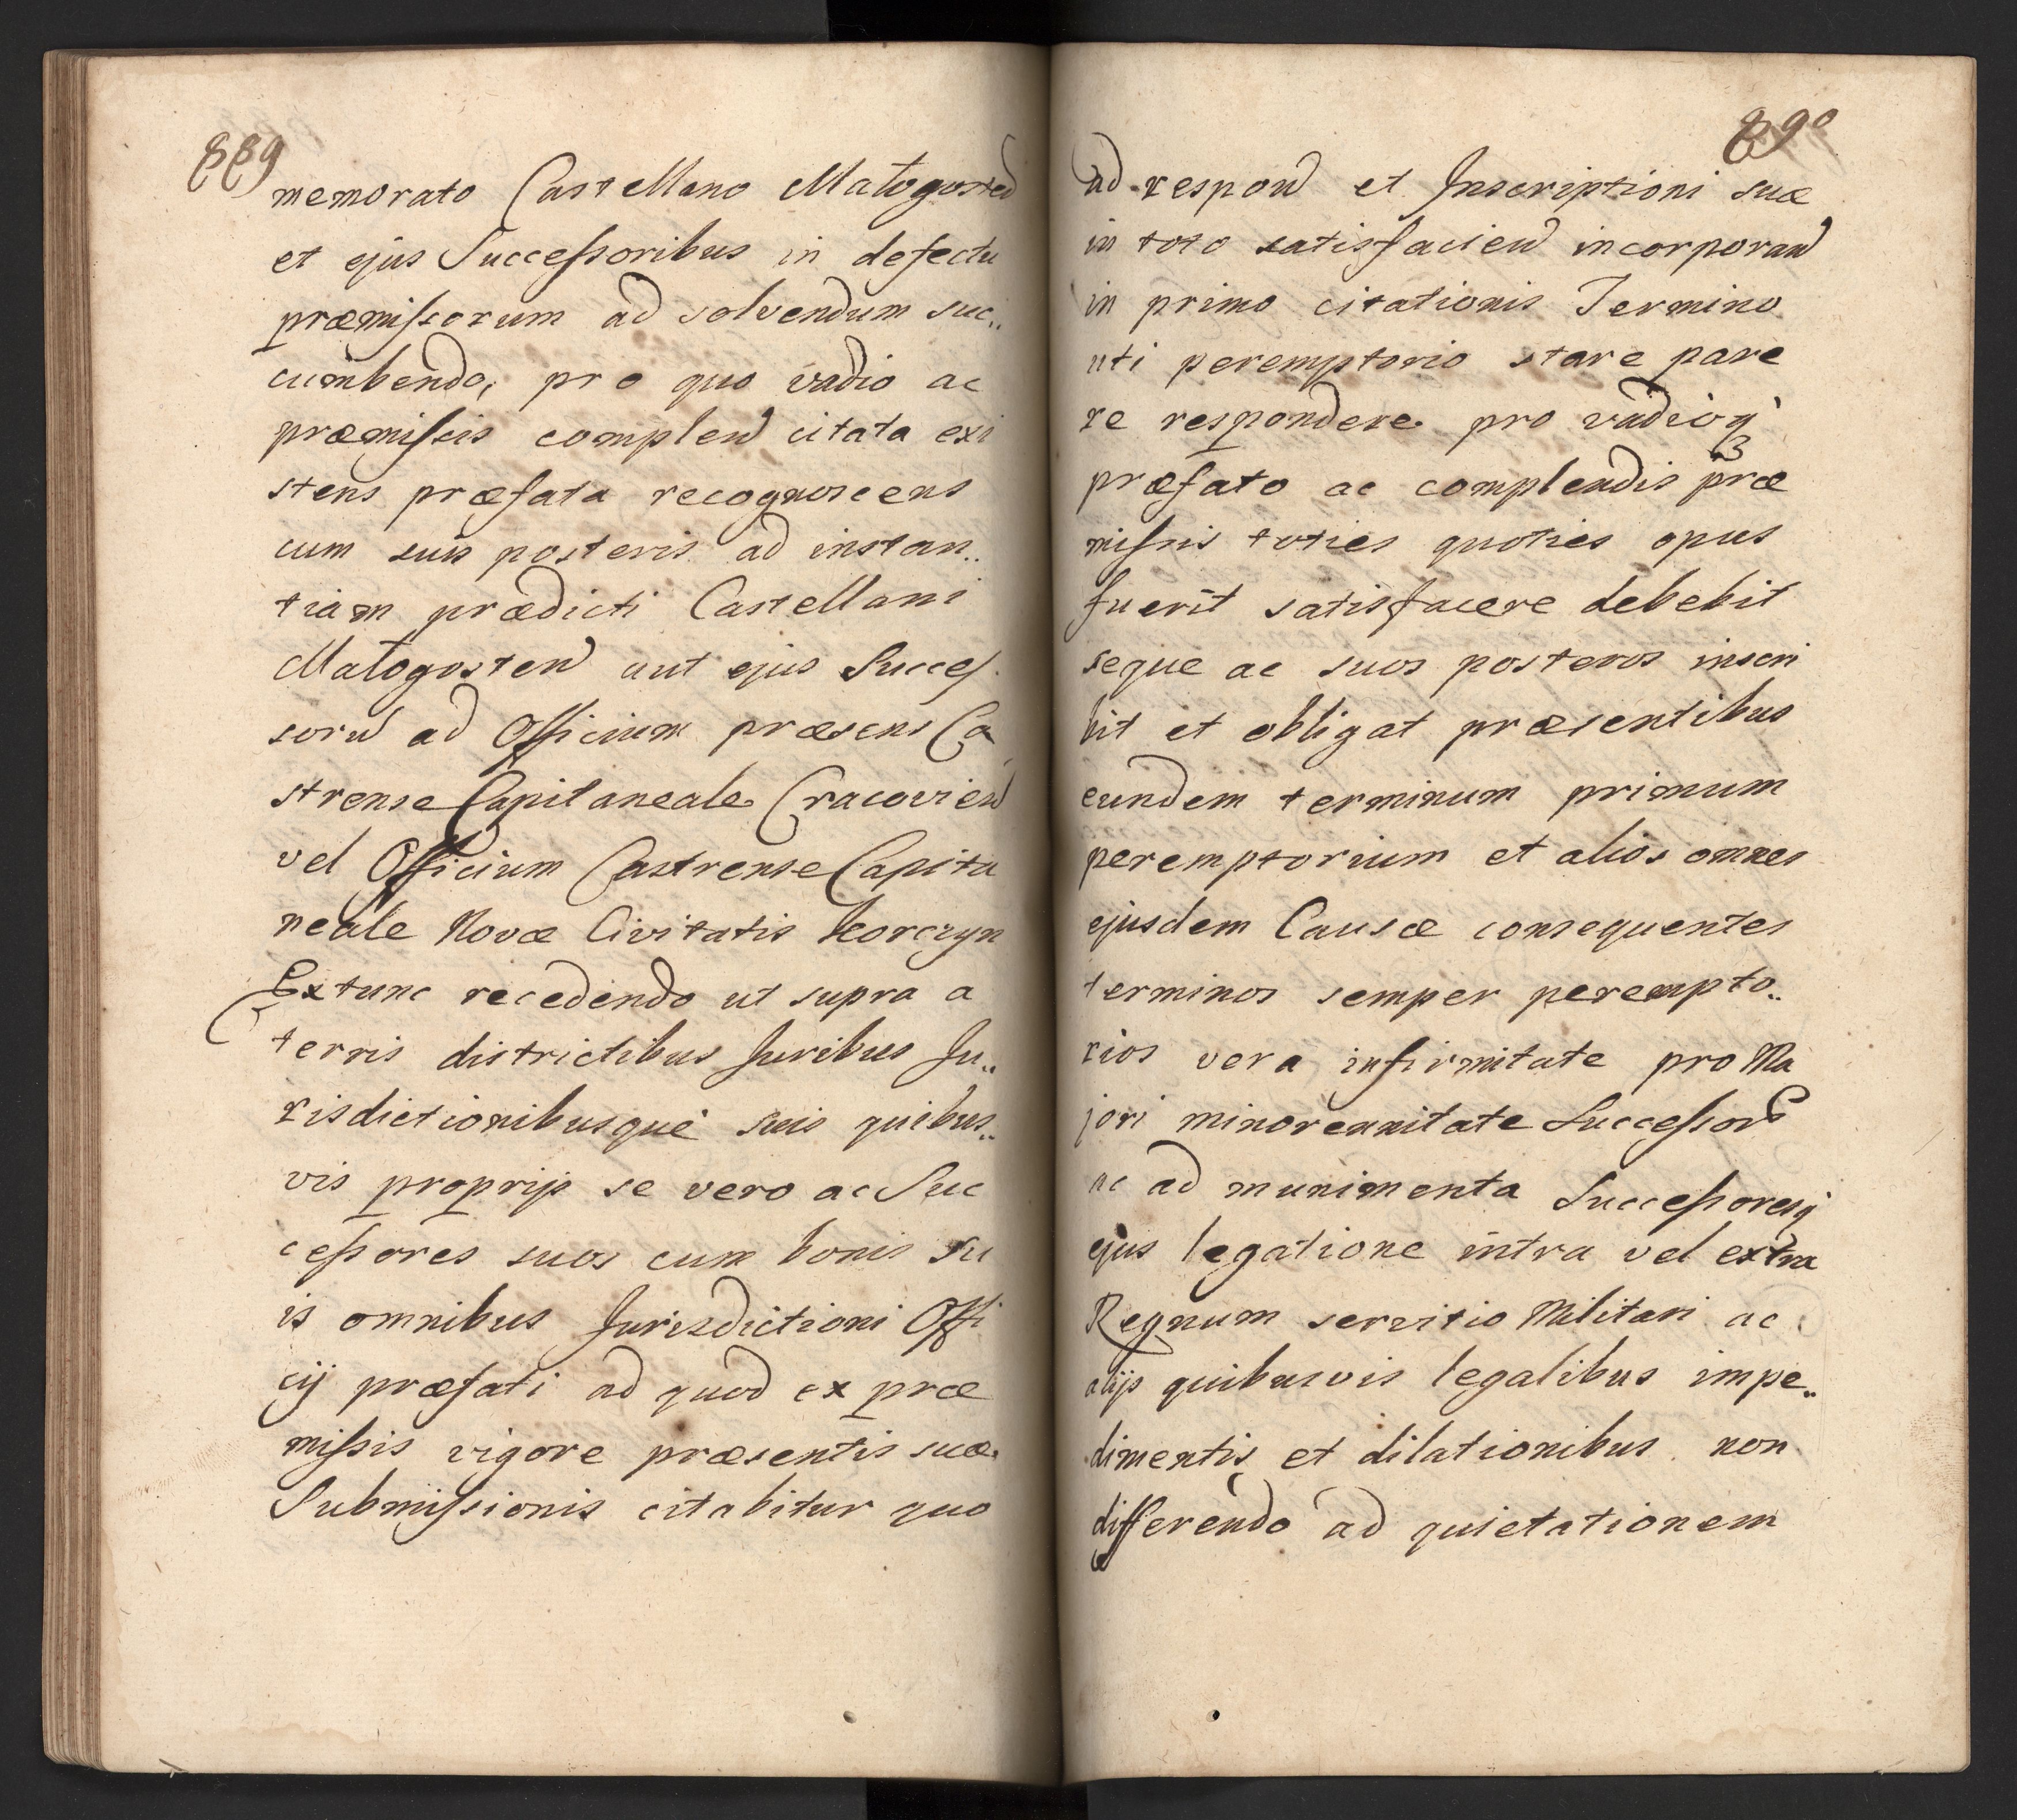 889
memorato Castellano Małogosten
et ejus Successoribus in defectu
præmissorum ad solvendum suc„
cumbendo, pro quo vadio ac
præmissis complen citata exi
stens præfata recognoscens
cum suis posteris ad instan„
tiam prædicti Castellani
Małogosten aut ejus Succes
sorū ad Officium præsens Ca
strense Capitaneale Cracovien
vel Officium Castrense Capita
neale Novæ Civitatis Korczyn
Extunc recedendo ut supra a
terris districtibus Juribus Ju„
risdictionibusque suis quibus„
vis proprijs se vero ac Suc
cessores suos cum bonis su
is omnibus Jurisdictioni Offi
cij præfati ad quod ex præ
missis vigore præsentis suæ
Submissionis citabitur quo
890
ad respon et Inscriptioni suæ
in toto satisfacien incorporan
in primo citationis Termino
uti peremptorio stare pare
re respondere pro vadioq
præfato ac complendis præ
missis toties quoties opus
fuerit satisfacere debebit
seque ac suos posteros inscri
bit et obligat præsentibus
eundem terminum primum
peremptorium et alios omnes
ejusdem Causæ consequentes
terminos semper perempto„
rios vera infirmitate pro Ma
jori minorennitate Successorū
ac ad munimenta Successoresq
ejus legatione intra vel extra
Regnum servitio Militari ac
alijs quibusvis legalibus impe„
dimentis et dilationibus non
differendo ad quietationem